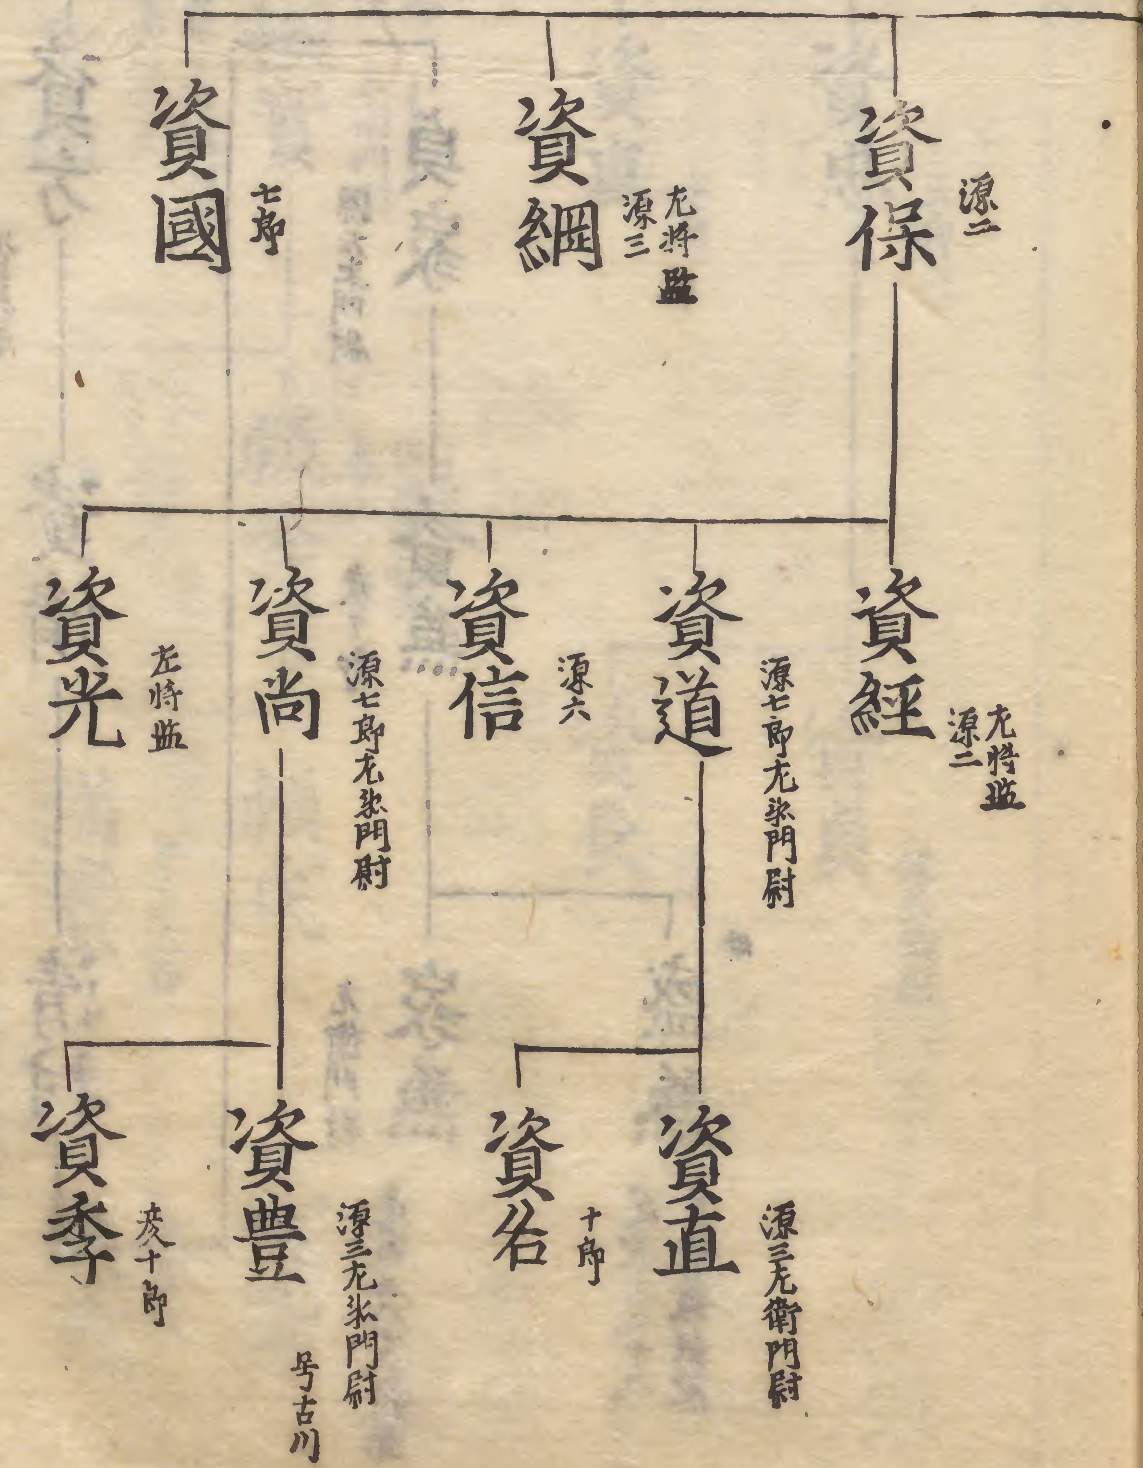 資保
源二
資綱
左將監
源三
資國
七郎
資經
左將監
源二
資道
源七郎左衛門尉
資信
源六
資尚
源七郎左衛門尉
資光
左將監
資直
源三左衛門尉
資名
十郎
資豊
源三左衛門尉
号古川
資季
彦十郎